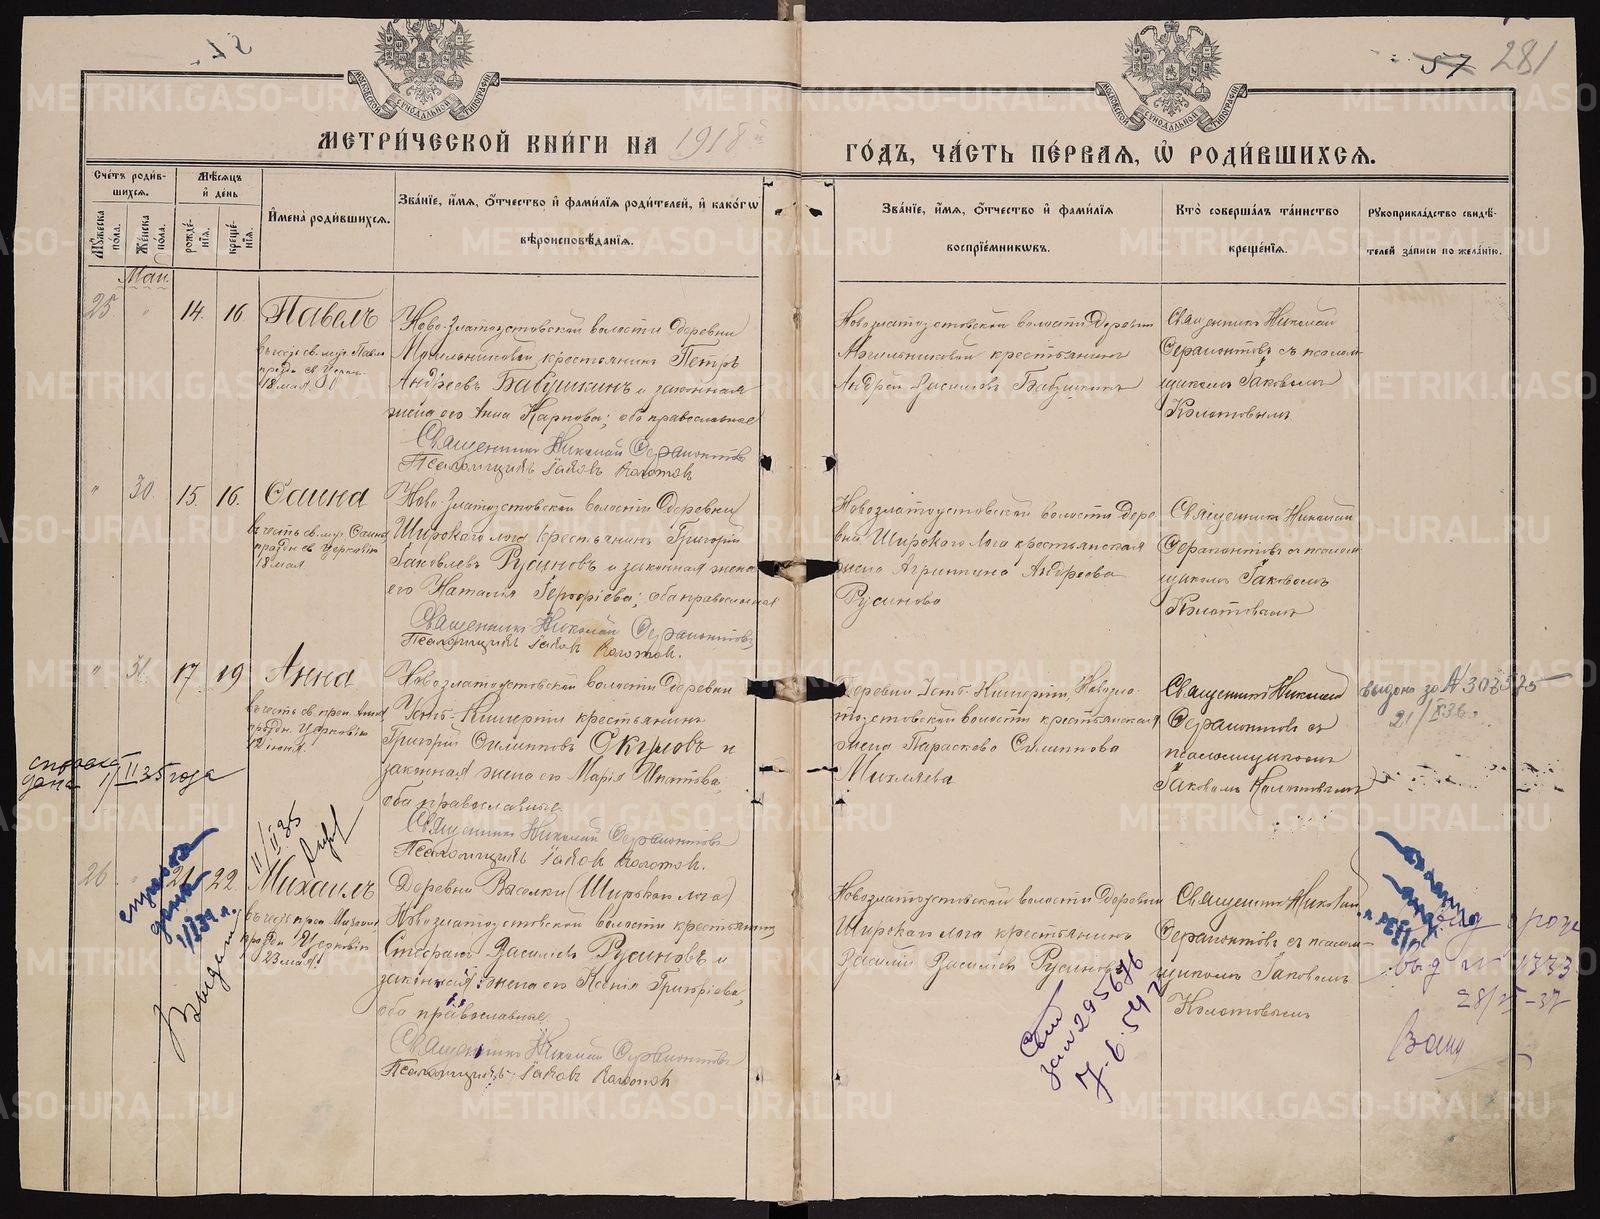 57 281
МЕТРИ́ЧЕСКОЙ КНИ́ГИ НА 1918 й
ГО́ДЪ, ЧА́СТЬ ПЕ́РВАЯ, Ѡ РОДИ́ВШИХСЯ.
Сче́тъ роди́в-
шихся.
Мѣ́сяцъ
и҆ де́нь
Му́жеска
по́ла.
Же́нска
по́ла.
рожде́-
нїя.
креще́-
нїя.
И҆мена̀ роди́вшихся.
Зва́нїе, и҆́мя, ѻ҆́тчество и҆ фами́лїя роди́телей, и҆ како́гѡ
вѣроисповѣ́данїя.
Зва́нїе, и҆́мя, ѻ҆́тчество и҆ фами́лїя
воспрїе́мникѡвъ.
Кто̀ соверша́лъ та́инство
креще́нїя.
Рукоприкла́дство свидѣ́-
телей за́писи по жела́нїю.
Май.
25. " 14. 16 Павелъ
въ честь св. муч. Павла
праздн. св. Церков.
18 мая
Ново-Златоустовской волости деревни
Мѣльниковой крестьянинъ Петръ
Андреевъ Бабушкинъ и законная
жена его Анна Карпова; оба православные
Священникъ Николай Серапонтовъ
Псаломщикъ Iаковъ Колотов
Новозлатоустовской волости деревни
Мѣльниковой крестьянинъ
Андрей Васильевъ Бабушкинъ
Священникъ Николай
Серапонтовъ съ псалом-
щикомъ Iаковомъ
Колотовымъ
" 30. 15. 16. Фаина
въ честь св. муч. Фаины
праздн. св. Церковiю
18 мая
Ново-Златоустовской волости деревни
Широкаго лога крестьянинъ Григорiй
Iаковлевъ Русиновъ и законная жена
его Наталiя Георгiева; оба православные
Священникъ Николай Серапонтовъ
Псаломщикъ Iаковъ Колотов.
Новозлатоустовской волости дере-
вни Широкаго Лога крестьянская
жена Агрипина Андреева
Русинова
Священникъ Николай
Серапонтовъ съ псалом-
щикомъ Iаковомъ
Колотовымъ
" 31. 17 19 Анна
въ честь св. прп. Анны
праздн. Церковiю
12 июня.
Новозлатоустовской волости деревни
Усть-Кишерти крестьянинъ
Григорiй Филипповъ Окуловъ и
законная жена его Марiя Игнатова,
оба православные.
Священникъ Николай Серапонтовъ
Псаломщикъ Iаков Колотов.
деревни Усть-Кишерти, Новозла-
тоустовской волости крестьянская
жена Параскева Филиппова
Михляева
Священникъ Николай
Серапонтовъ съ
псаломщикомъ
Iаковомъ Колотовымъ
выдано за № 307575
справка
дана 1/II 35 года
11/II 35
26. " 21 22 Михаилъ
въ честь прп. Михаила
праздн. Церковiю
23 мая.
Деревни Выселки (Широкаго лога)
Новозлатоустовской волости крестьянинъ
Стефанъ Василiевъ Русиновъ и
законная жена его Ксенiя Григорiева,
оба православные.
Священникъ Николай Серапонтовъ
Псаломщикъ Iаковъ Колотов
Новозлатоустовской волости деревни
Широкаго лога крестьянинъ
Василiй Василiевъ Русиновъ
Священникъ Николай
Серапонтовъ съ псалом-
щикомъ Iаковомъ
Колотовымъ
справка
дана
Выдан
за № 295676
7.6.54 г
выд № 1333
28/VI-37